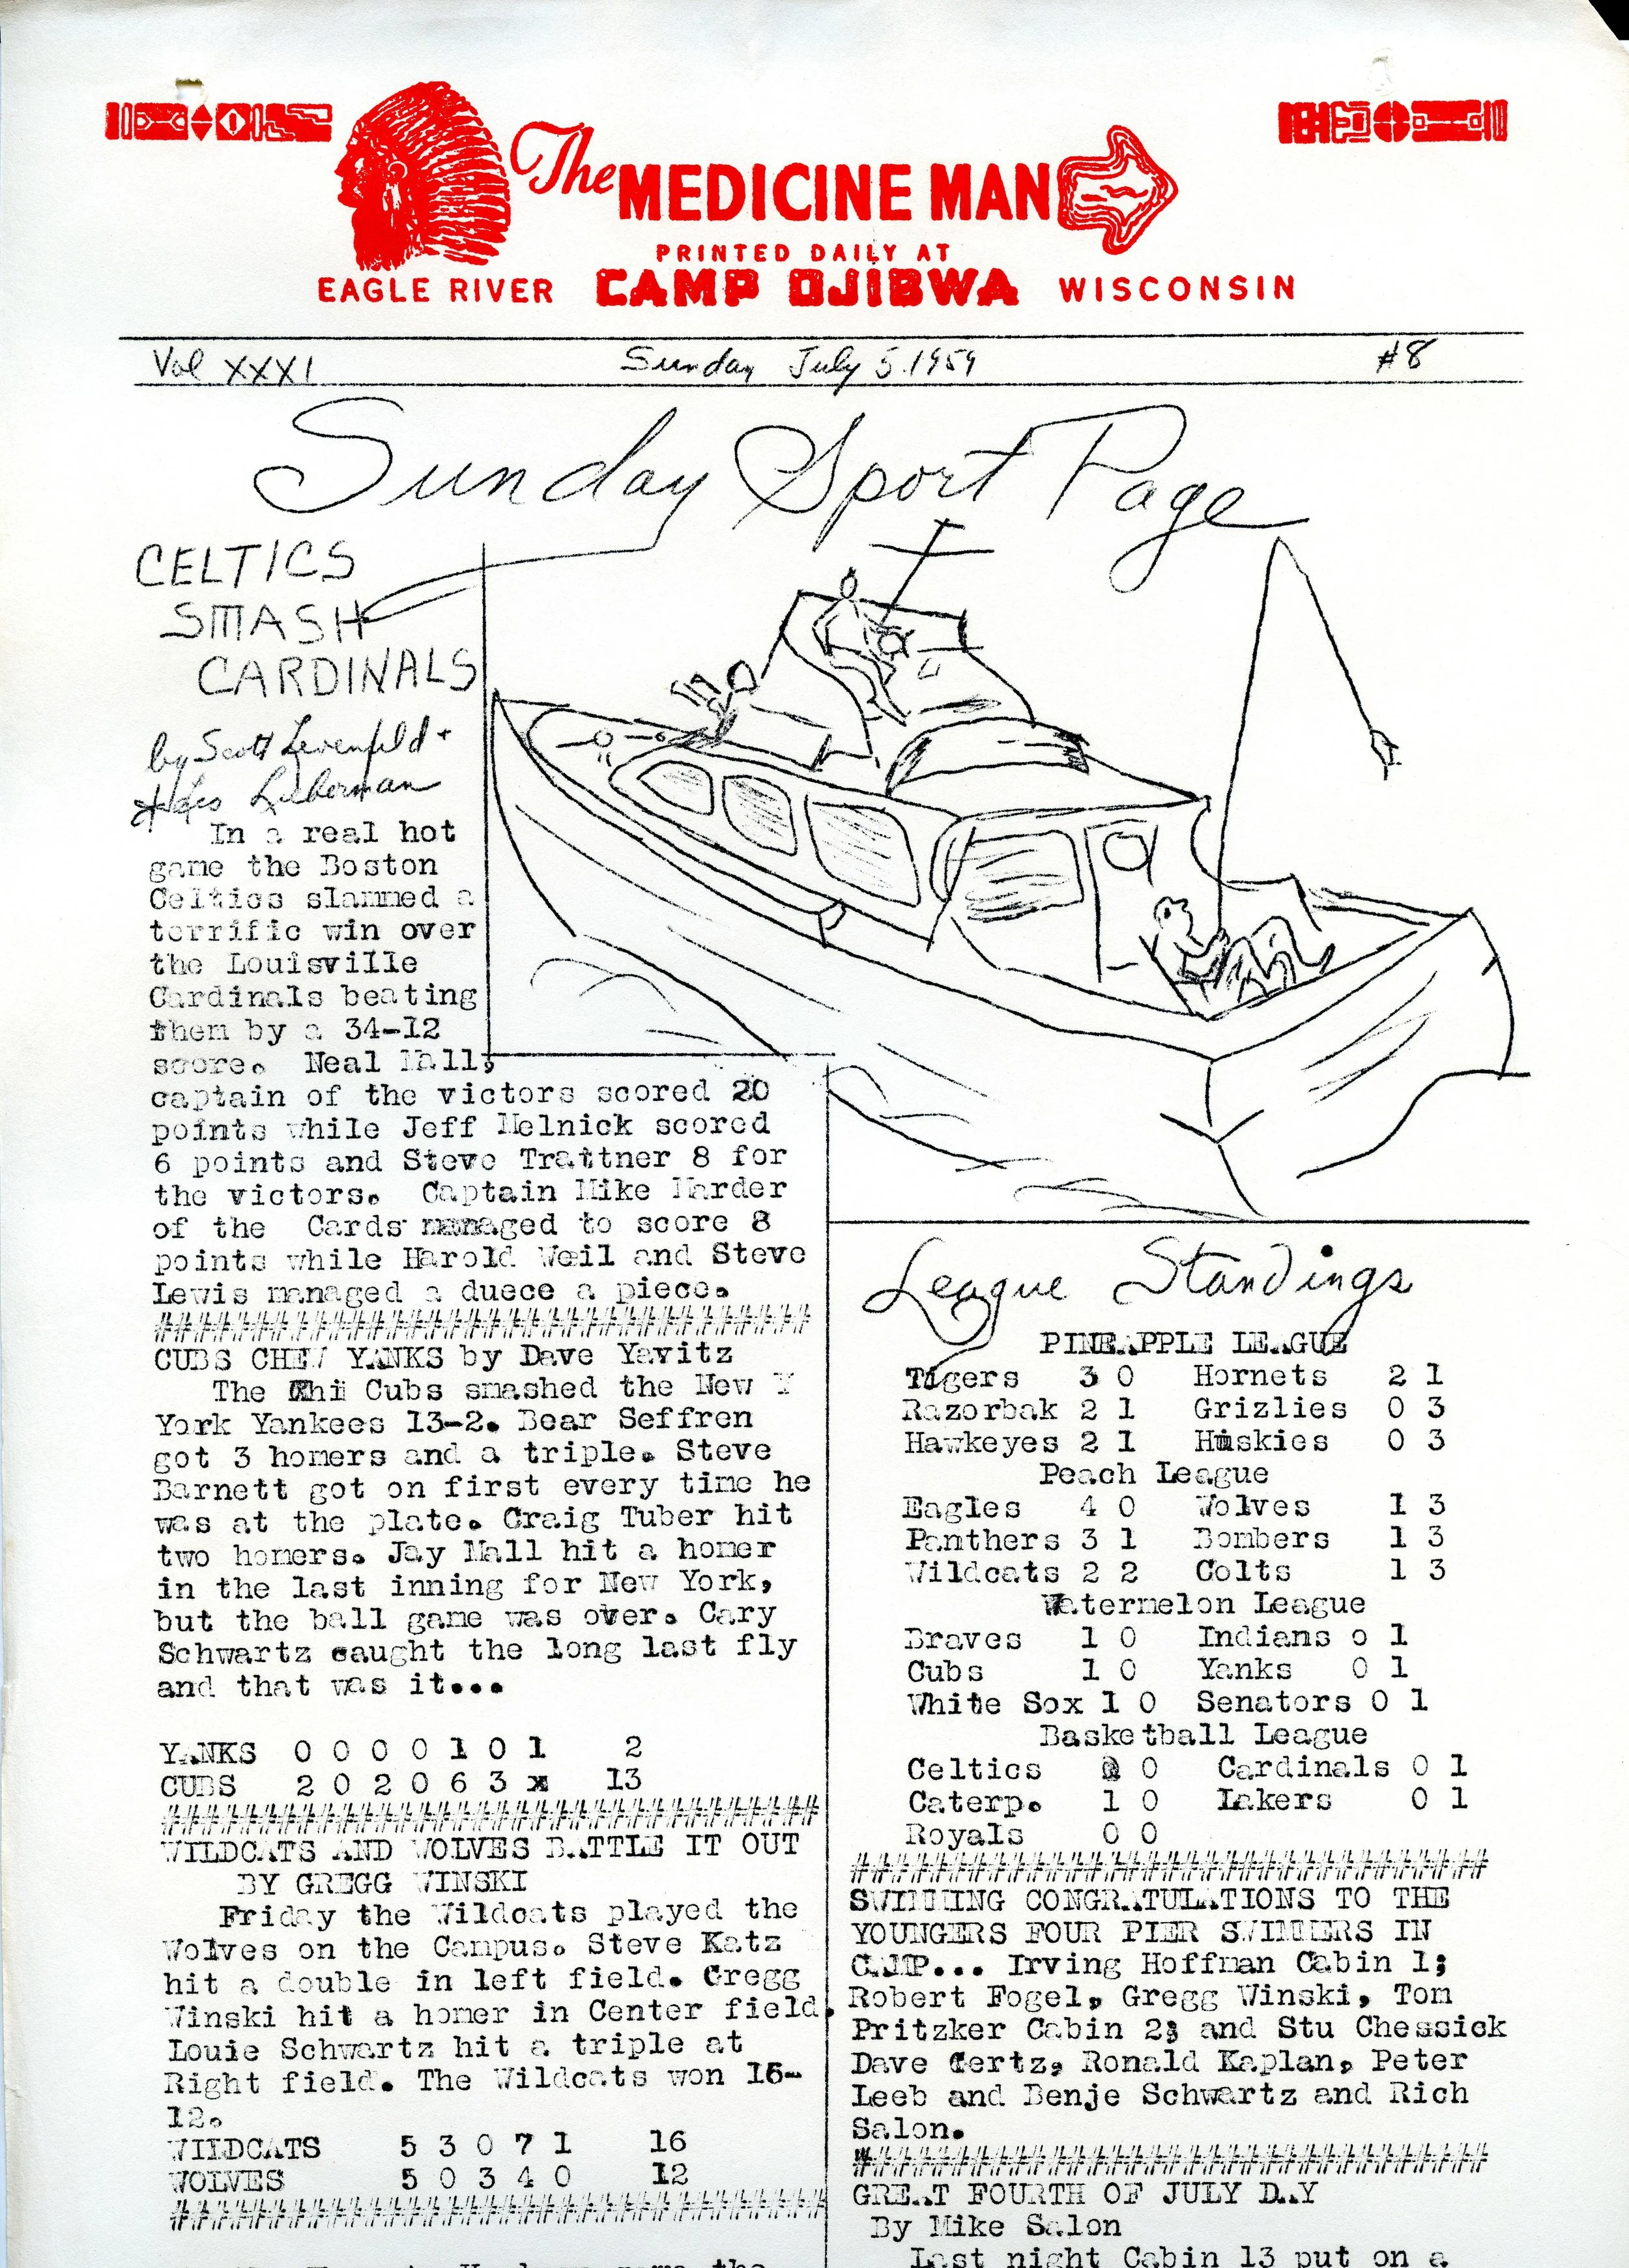 The MEDICINE MAN
PRINTED DAILY AT
EAGLE RIVER CAMP OJIBWA WISCONSIN
Vol XXXI Sunday July 5 1959 #8
Sunday Sport Page
CELTICS
SMASH
CARDINALS
by Scott Levenfeld +
Lieberman
In a real hot
game the Boston
Celtics slammed a
terrific win over
the Louisville
Cardinals beating
them by a 34-12
score. Neal Mall,
captain of the victors scored 20
points while Jeff Melnick scored
6 points and Steve Trattner 8 for
the victors. Captain Mike Harder
of the Cards managed to score 8
points while Harold Weil and Steve
Lewis managed a duece a piece.
##########################################
CUBS CHEW YANKS by Dave Yavitz
The Chi Cubs smashed the New Y
York Yankees 13-2. Bear Seffren
got 3 homers and a triple. Steve
Barnett got on first every time he
was at the plate. Craig Tuber hit
two homers. Jay Mall hit a homer
in the last inning for New York,
but the ball game was over. Cary
Schwartz caught the long last fly
and that was it...
YANKS 0 0 0 0 1 0 1 2
CUBS 2 0 2 0 6 3 x 13
##########################################
WILDCATS AND WOLVES BATTLE IT OUT
BY GREGG WINSKI
Friday the Wildcats played the
Wolves on the Campus. Steve Katz
hit a double in left field. Gregg
Winski hit a homer in Center field.
Louie Schwartz hit a triple at
Right field. The Wildcats won 16-
12.
WILDCATS 5 3 0 7 1 16
WOLVES 5 0 3 4 0 12
##########################################
League Standings
PINEAPPLE LEAGUE
Tigers 3 0 Hornets 2 1
Razorbak 2 1 Grizlies 0 3
Hawkeyes 2 1 Huskies 0 3
Peach League
Eagles 4 0 Wolves 1 3
Panthers 3 1 Bombers 1 3
Wildcats 2 2 Colts 1 3
Watermelon League
Braves 1 0 Indians o 1
Cubs 1 0 Yanks 0 1
White Sox 1 0 Senators 0 1
Basketball League
Celtics 0 Cardinals 0 1
Caterp. 1 0 Lakers 0 1
Royals 0 0
##########################################
SWIMMING CONGRATULATIONS TO THE
YOUNGERS FOUR PIER SWIMMERS IN
CAMP... Irving Hoffman Cabin 1;
Robert Fogel, Gregg Winski, Tom
Pritzker Cabin 2; and Stu Chessick
Dave Gertz, Ronald Kaplan, Peter
Leeb and Benje Schwartz and Rich
Salon.
##########################################
GREAT FOURTH OF JULY DAY
By Mike Salon
Last night Cabin 13 put on a